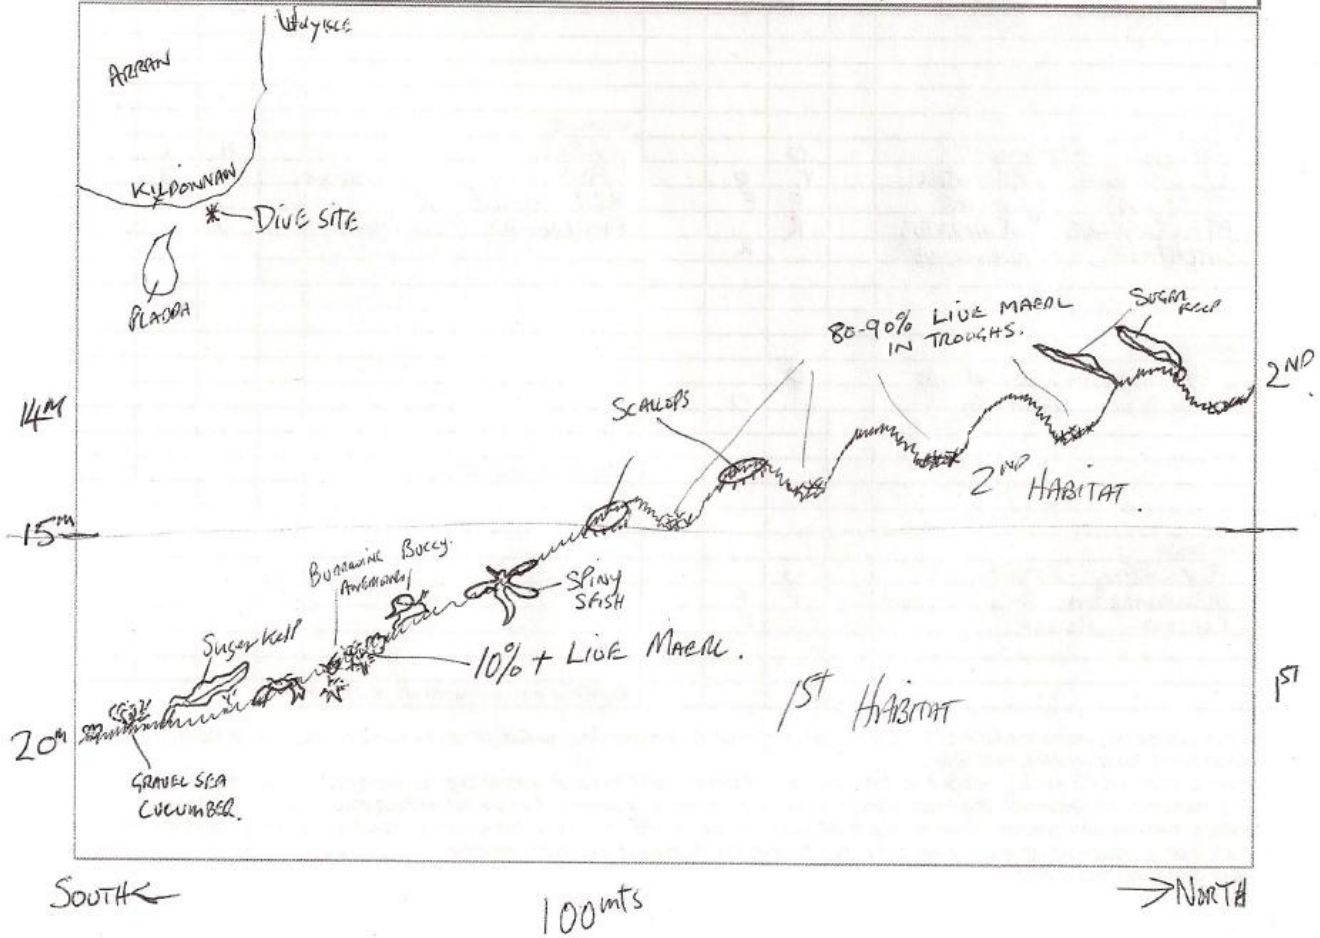 ARRAN
KILDONNAN
DIVE SITE
PLADDA
80-90% LIVE MAERL
IN TROUGHS.
SUGAR
KELP
2ND
14M
SCALLOPS
2ND HABITAT
15M
BURROWING
ANEMONE
SPINY
SFISH
Sugar Kelp
10% + LIVE MAERL.
1ST HABITAT
1ST
20M
GRAVEL SEA
CUCUMBER.
SOUTH
100mts
NORTH